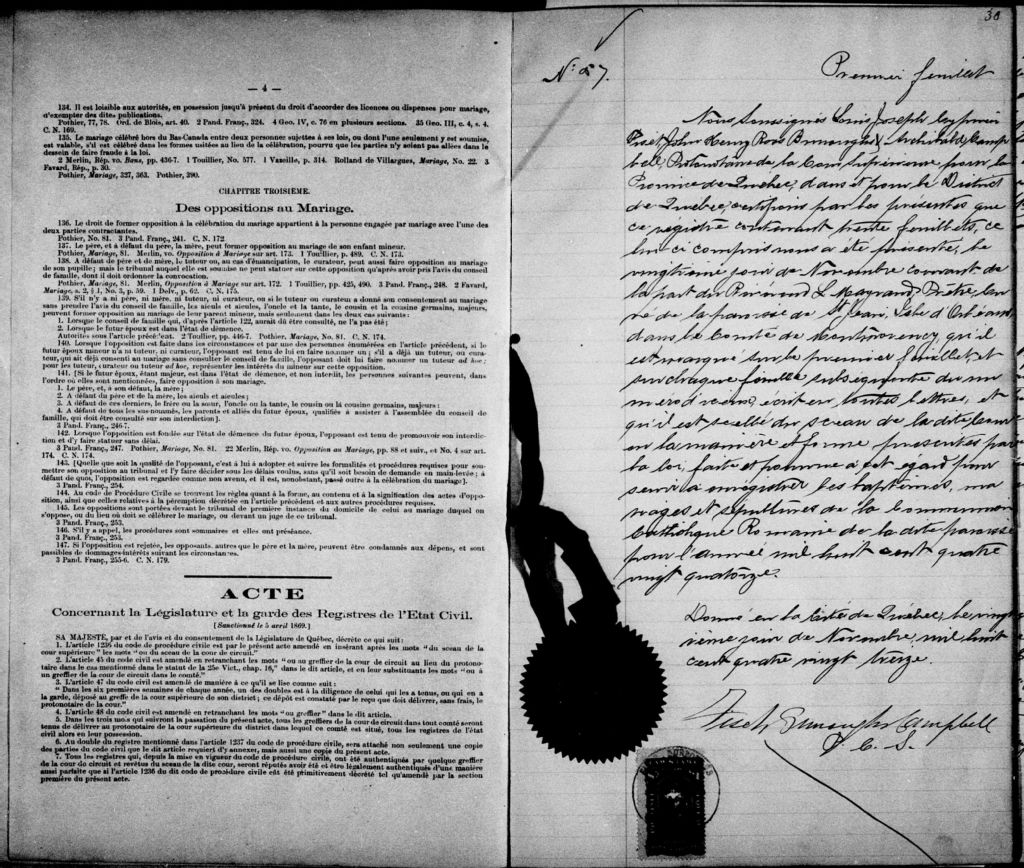 — 4 —
134. Il est loisible aux autorités, en possession jusqu'à présent du droit d'accorder des licences ou dispenses pour mariage,
d'exempter des dites publications.
Pothier, 77, 78. Ord. de Blois, art. 40. 2 Pand. Franç., 324. 4 Geo. IV, c. 76 en plusieurs sections. 35 Geo. III, c. 4, s. 4.
C. N. 169.
135. Le mariage célébré hors du Bas-Canada entre deux personnes sujettes à ses lois, ou dont l'une seulement y est soumise,
est valable, s'il est célébré dans les formes usitées au lieu de la célébration, pourvu que les parties n'y soient pas allées dans le
dessein de faire fraude à la loi.
2 Merlin, Rép. vo. Bans, pp. 436-7. 1 Touillier, No. 577. 1 Vazeille, p. 314. Rolland de Villargues, Mariage, No. 22. 3
Favard, Rép., p. 30.
Pothier, Mariage, 327, 363. Pothier, 390.
CHAPITRE TROISIEME.
Des oppositions au Mariage.
136. Le droit de former opposition à la célébration du mariage appartient à la personne engagée par mariage avec l'une des
deux parties contractantes.
Pothier, No. 81. 3 Pand. Franç., 241. C. N. 172
137. Le père, et à défaut du père, la mère, peut former opposition au mariage de son enfant mineur.
Pothier, Mariage, 81. Merlin, vo. Opposition à Mariage sur art. 173. 1 Toullier, p. 489. C. N. 173.
138. A défaut de père et de mère, le tuteur, ou, au cas d'émancipation, le curateur, peut aussi faire opposition au mariage
de son pupille; mais le tribunal auquel elle est soumise ne peut statuer sur cette opposition qu'après avoir pris l'avis du conseil
de famille, dont il doit ordonner la convocation.
Pothier, Mariage, 81. Merlin, Opposition à Mariage sur art. 172. 1 Touillier, pp. 425, 490. 3 Pand. Franç., 248. 2 Favard,
Mariage, s. 2, § 1, No. 3, p. 59. 1 Delv., p. 62. C. N. 175.
139. S'il n'y a ni père, ni mère, ni tuteur, ni curateur, ou si le tuteur ou curateur a donné son consentement au mariage
sans prendre l'avis du conseil de famille, les aïeuls et aïeules, l'oncle et la tante, le cousin et la cousine germains, majeurs,
peuvent former opposition au mariage de leur parent mineur, mais seulement dans les deux cas suivants:
1. Lorsque le conseil de famille qui, d'après l'article 122, aurait dû être consulté, ne l'a pas été;
2. Lorsque le futur époux est dans l'état de démence.
Autorités sous l'article précédent. 2 Toullier, pp. 446-7. Pothier, Mariage, No. 81. C. N. 174.
140. Lorsque l'opposition est faite dans les circonstances et par une des personnes énumérées en l'article précédent, si le
futur époux mineur n'a ni tuteur, ni curateur, l'opposant est tenu de lui en faire nommer un; s'il a déjà un tuteur, ou cura-
teur, qui ait déjà consenti au mariage sans consulter le conseil de famille, l'opposant doit lui faire nommer un tuteur ad hoc;
pour les tuteur, curateur ou tuteur ad hoc, représenter les intérêts du mineur sur cette opposition.
141. [Si le futur époux, étant majeur, est dans l'état de démence, et non interdit, les personnes suivantes peuvent, dans
l'ordre où elles sont mentionnées, faire opposition à son mariage.
1. Le père, et, à son défaut, la mère;
2. A défaut du père et de la mère, les aïeuls et aïeules;
3. A défaut de ces derniers, le frère ou la sœur, l'oncle ou la tante, le cousin ou la cousine germains, majeurs;
4. A défaut de tous les sus-nommés, les parents et alliés du futur époux, qualifiés à assister à l'assemblée du conseil de
famille, qui doit être consulté sur son interdiction].
3 Pand. Franç., 246-7.
142. Lorsque l'opposition est fondée sur l'état de démence du futur époux, l'opposant est tenu de promouvoir son interdic-
tion et d'y faire statuer sans délai.
3 Pand. Franç., 247. Pothier, Mariage, No. 81. 22 Merlin, Rép. vo. Opposition au Mariage, pp. 88 et suiv., et No. 4 sur art.
174. C. N. 174.
143. [Quelle que soit la qualité de l'opposant, c'est à lui à adopter et suivre les formalités et procédures requises pour sou-
mettre son opposition au tribunal et l'y faire décider sous les délais voulus, sans qu'il soit besoin de demande en main-levée; à
défaut de quoi, l'opposition est regardée comme non avenue, et il est, nonobstant, passé outre à la célébration du mariage].
3 Pand. Franç., 254.
144. Au code de Procédure Civile se trouvent les règles quant à la forme, au contenu et à la signification des actes d'oppo-
sition, ainsi que celles relatives à la péremption décrétée en l'article précédent et aux autres procédures requises.
145. Les oppositions sont portées devant le tribunal de première instance du domicile de celui au mariage duquel on
s'oppose, ou du lieu où doit se célébrer le mariage, ou devant un juge de ce tribunal.
3 Pand. Franç., 253.
146. S'il y a appel, les procédures sont sommaires et elles ont préséance.
3 Pand. Franç., 253.
147. Si l'opposition est rejetée, les opposants, autres que le père et la mère, peuvent être condamnés aux dépens, et sont
passibles de dommages-intérêts suivant les circonstances.
3 Pand. Franç., 255-6. C. N. 179.
ACTE
Concernant la Législature et la garde des Registres de l'Etat Civil.
[Sanctionné le 5 avril 1869.]
SA MAJESTÉ, par et de l'avis et du consentement de la Législature de Québec, décrète ce qui suit:
1. L'article 1236 du code de procédure civile est par le présent acte amendé en insérant après les mots "du sceau de la
cour supérieure" les mots "ou du sceau de la cour de circuit."
2. L'article 45 du code civil est amendé en retranchant les mots "ou au greffier de la cour de circuit au lieu du protono-
taire dans le cas mentionné dans le statut de la 25e Vict., chap. 16," dans le dit article, et en leur substituants les mots "ou à
un greffier de la cour de circuit dans le comté."
3. L'article 47 du code civil est amendé de manière à ce qu'il se lise comme suit:
"Dans les six premières semaines de chaque année, un des doubles est à la diligence de celui qui les a tenus, ou qui en a
la garde, déposé au greffe de la cour supérieure de son district; ce dépôt est constaté par le reçu que doit délivrer, sans frais, le
protonotaire de la cour."
4. L'article 48 du code civil est amendé en retranchant les mots "ou greffier" dans le dit article.
5. Dans les trois mois qui suivront la passation du présent acte, tous les greffiers de la cour de circuit dans tout comté seront
tenus de délivrer au protonotaire de la cour supérieure du district dans lequel ce comté est situé, tous les registres de l'état
civil alors en leur possession.
6. Au double du registre mentionné dans l'article 1237 du code de procédure civile, sera attaché non seulement une copie
des parties du code civil que le dit article requiert d'y annexer, mais aussi une copie du présent acte.
7. Tous les registres qui, depuis la mise en vigueur du code de procédure civile, ont été authentiqués par quelque greffier
de la cour de circuit et revêtus du sceau de la dite cour, seront réputés avoir été et être légalement authentiqués d'une manière
aussi parfaite que si l'article 1236 du dit code de procédure civile eût été primitivement décrété tel qu'amendé par la section
première du présent acte.
30
No. 87.
Premier feuillet
Nous Soussignés Louis Joseph Cyprien
Fiset, John Henry Ross Burroughs & Archibald Camp
bell, Protonotaire de la Cour Supérieure pour la
Province de Québec, dans et pour le District
de Québec, certifions par les présentes que
ce registre contenant trente feuillets, ce
lui ci compris nous a été présenté, le
vingtième jour de Novembre courant de
la part du Révérend L. Mayrand, Prêtre, Cu
ré de la paroisse de St Jean, Isle d'Orléans,
dans le Comté de Montmorency, qu'il
est marqué sur le premier feuillet et
sur chaque feuillet subséquent du nu
méro d'icelui, écrit en toutes lettres, et
qu'il est scellé du sceau de la dite Cour
en la manière et forme prescrites par
la loi, faite et pourvue à cet égard pour
servir à enregistrer les baptêmes, ma
riages et sépultures de la Communion
Catholique Romaine de la dite paroisse
pour l'année mil huit cent quatre
vingt quatorze.
Donné en la Cité de Québec, le ving
tième jour de Novembre, mil huit
cent quatre vingt treize.
Fiset, Burroughs Campbell
P. C. S.